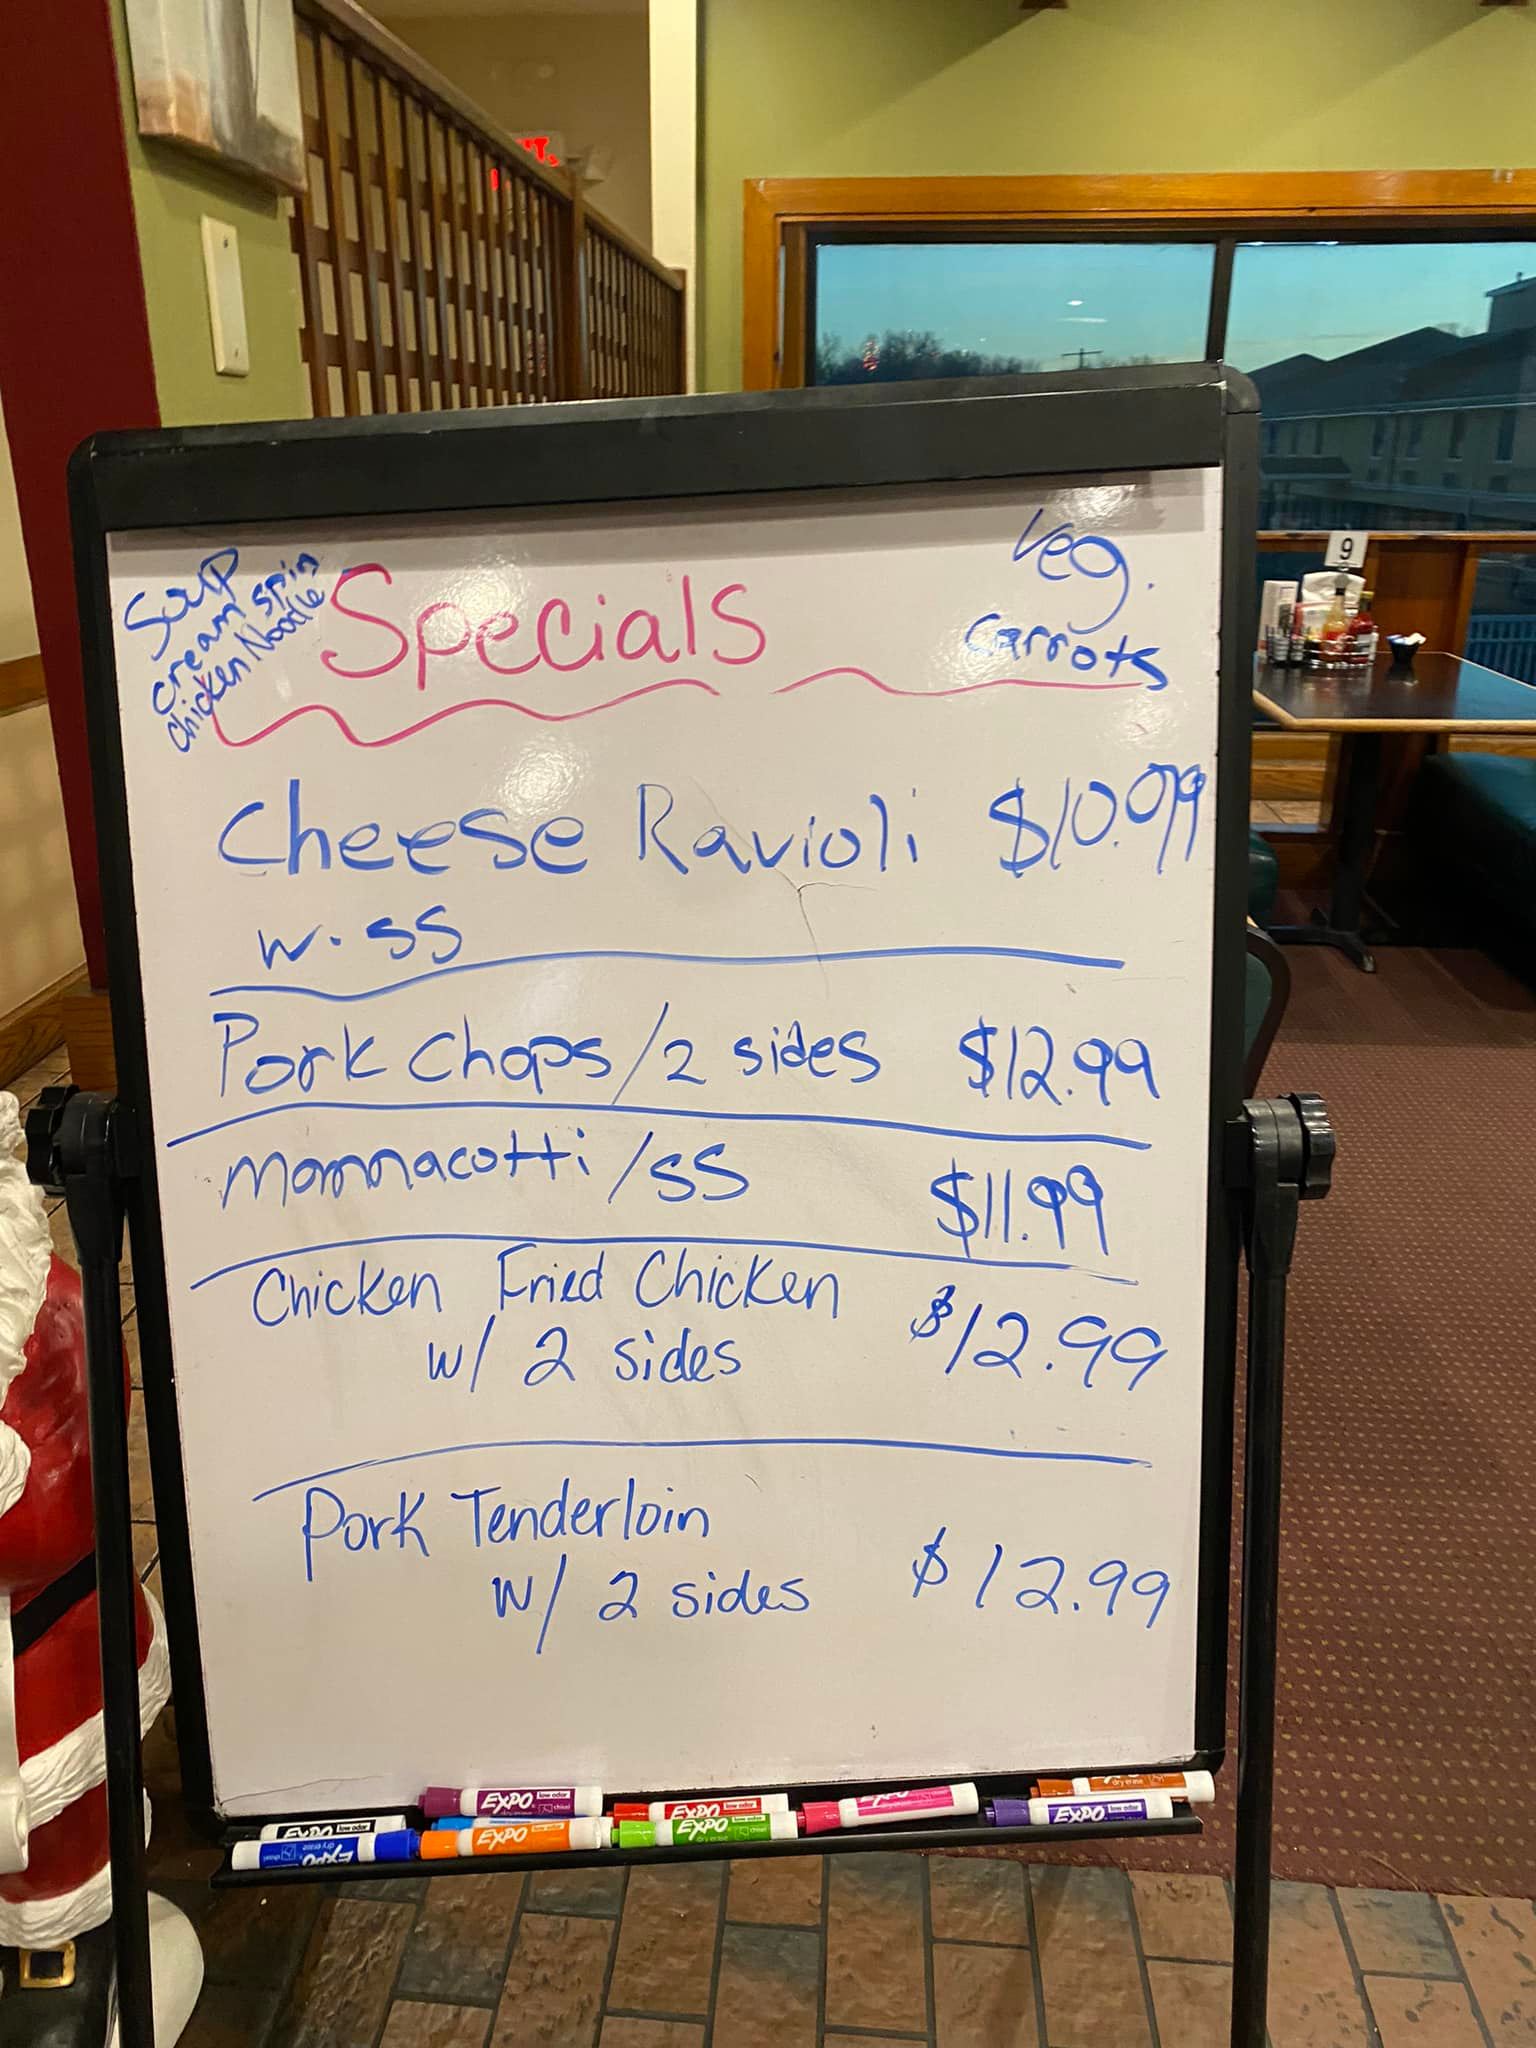 Soup
cream spin
chicken Noodle
Specials
Veg.
Carrots
Cheese Ravioli $10.99
w. SS
Pork Chops/2 sides $12.99
Monnacotti/SS $11.99
Chicken Fried Chicken $12.99
w/ 2 sides
Pork Tenderloin $12.99
w/ 2 sides
9
EXPO low odor chisel
EXPO low odor
dry erase
EXPO low odor
EXPO low odor
EXPO dry erase
EXPO
EXPO dry erase chisel
EXPO